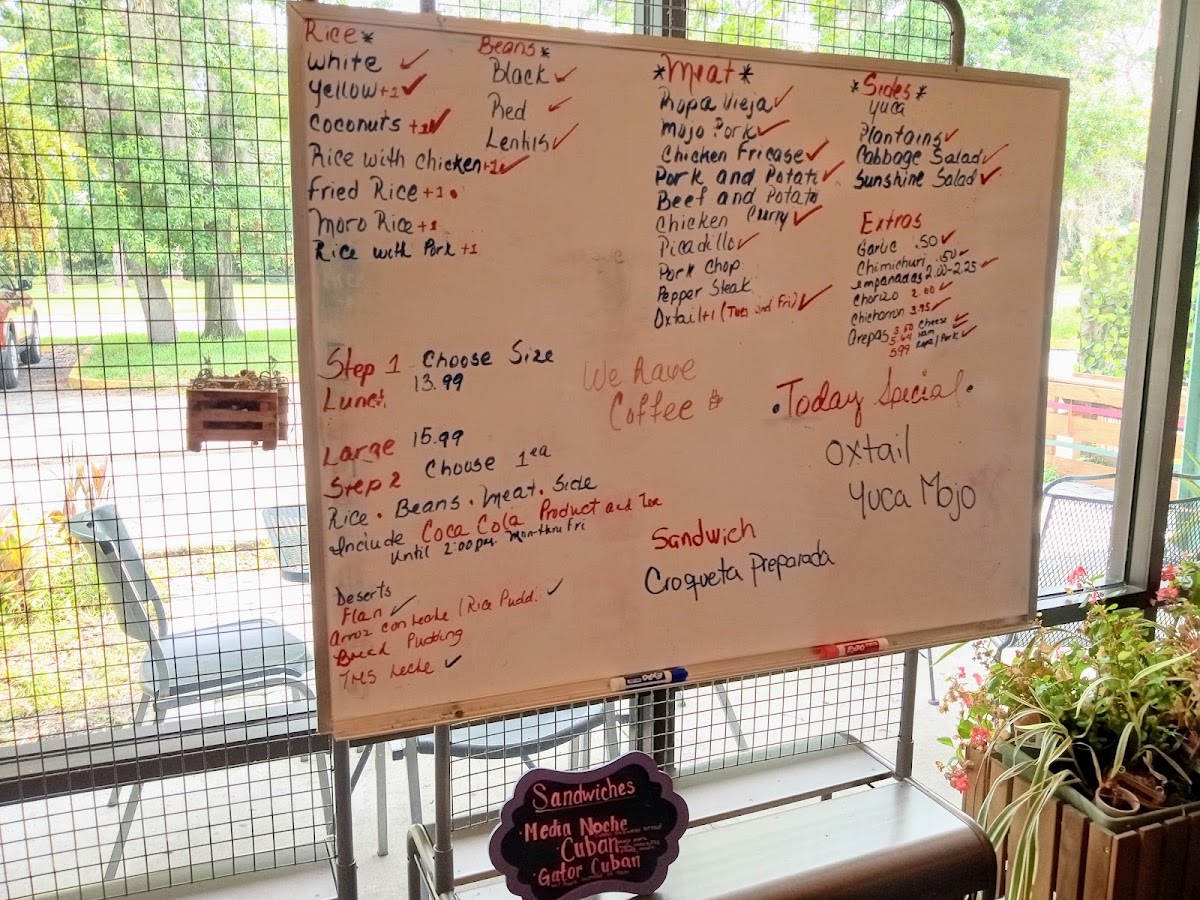 Rice*
White ✓
Yellow +1 ✓
Coconuts +1 ✓
Rice with Chicken +1 ✓
Fried Rice +1
Moro Rice +1
Rice with Pork +1
Beans*
Black ✓
Red ✓
Lentils ✓
*Meat*
Ropa Vieja ✓
Mojo Pork ✓
Chicken Fricase ✓
Pork and Potato ✓
Beef and Potato
Chicken Curry ✓
Picadillo ✓
Pork Chop
Pepper Steak
Oxtail +1 (Tues and Fri) ✓
*Sides*
Yuca
Plantains ✓
Cabbage Salad ✓
Sunshine Salad ✓
Extras
Garlic .50 ✓
Chimichuri .50 ✓
Empanadas 2.00-2.25 ✓
Chorizo 2.00 ✓
Chicharron 3.95 ✓
Arepas 3.50 Cheese ✓
Ham ✓
5.99 Ropa/Pork ✓
Step 1 Choose Size
Lunch 13.99
Large 15.99
Step 2 Choose 1 ea
Rice • Beans • Meat • Side
Include Coca Cola Product and Tea
Until 2:00 pm. Mon thru Fri
We Have
Coffee
• Today Special •
Oxtail
Yuca Mojo
Sandwich
Croqueta Preparada
Deserts
Flan ✓
Arroz con Leche / Rice Pudd. ✓
Bread Pudding
Tres Leche ✓
EXPO
EXPO
Sandwiches
• Media Noche
• Cuban
• Gator Cuban